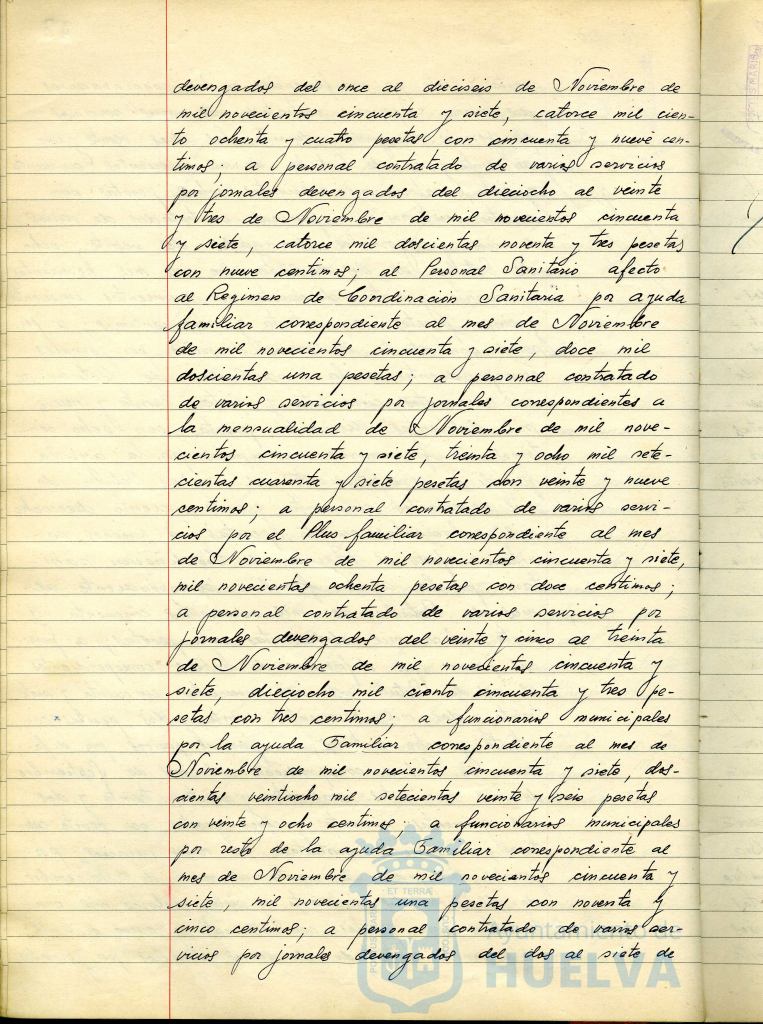 devengados del once al dieciseis de Noviembre de
mil novecientos cincuenta y siete, catorce mil cien-
to ochenta y cuatro pesetas con cincuenta y nueve cen-
timos; a personal contratado de varios servicios
por jornales devengados del dieciocho al veinte
y tres de Noviembre de mil novecientos cincuenta
y siete, catorce mil doscientas noventa y tres pesetas
con nueve centimos; al Personal Sanitario afecto
al Regimen de Coordinación Sanitaria por ayuda
familiar correspondiente al mes de Noviembre
de mil novecientos cincuenta y siete, doce mil
doscientas una pesetas; a personal contratado
de varios servicios por jornales correspondientes a
la mensualidad de Noviembre de mil nove-
cientos cincuenta y siete, treinta y ocho mil sete-
cientas cuarenta y siete pesetas con veinte y nueve
centimos; a personal contratado de varios servi-
cios por el Plus familiar correspondiente al mes
de Noviembre de mil novecientos cincuenta y siete,
mil novecientas ochenta pesetas con doce centimos;
a personal contratado de varios servicios por
jornales devengados del veinte y cinco al treinta
de Noviembre de mil novecientos cincuenta y
siete, dieciocho mil ciento cincuenta y tres pe-
setas con tres centimos; a funcionarios municipales
por la ayuda Familiar correspondiente al mes de
Noviembre de mil novecientos cincuenta y siete, dos-
cientas veintiocho mil setecientas veinte y seis pesetas
con veinte y ocho centimos; a funcionarios municipales
por resto de la ayuda Familiar correspondiente al
mes de Noviembre de mil novecientos cincuenta y
siete, mil novecientas una pesetas con noventa y
cinco centimos; a personal contratado de varios ser-
vicios por jornales devengados del dos al siete de
ET TERRÆ
Ayuntamiento de
HUELVA